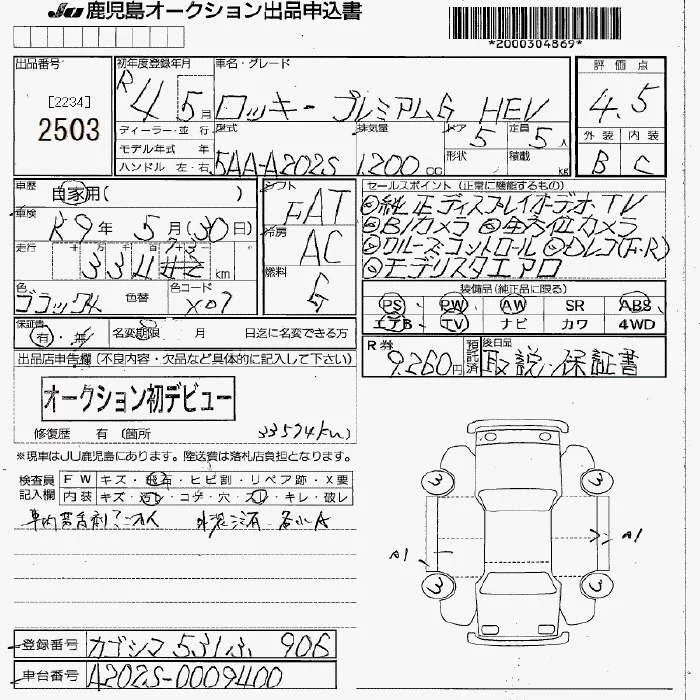 JU 鹿児島オークション出品申込書
*2000304869*
出品番号
[2234]
2503
初年度登録年月
R4 5月
車名・グレード
ロッキー プレミアムG HEV
評価点
4.5
外装 内装
B C
ディーラー・並行
モデル年式 年
ハンドル 左・右
型式
5AA-A202S
排気量
1200cc
ドア
5
定員
5人
形状
積載
kg
車歴
自家用( )
車検
R9年 5月(30日)
走行
十万 万 千 百 十
km
色
ブラックM
色替
色コード
X07
シフト
FAT
冷房
AC
燃料
G
セールスポイント (正常に機能するもの)
純正ディスプレイオーディオ TV
Bカメラ 全方位カメラ
クルーズコントロール Dレコ(F・R)
モデリスタエアロ
装備品(純正品に限る)
PS PW AW SR ABS
エアB TV ナビ カワ 4WD
保証書
有・無
名変期限 月 日迄に名変できる方
R券
9,260円
預託済
後日品
取説・保証書
出品店申告欄 (不良内容・欠品など具体的に記入して下さい)
オークション初デビュー
修復歴 有 (箇所
33574km
※現車はJU鹿児島にあります。陸送費は落札店負担となります。
検査員記入欄
FW キズ・飛石・ヒビ割・リペア跡・X要
内装 キズ・汚レ・コゲ・穴・スレ・キレ・破レ
3 3
A1 A1
3 3
登録番号 カゴシマ 531ふ 906
車台番号 A202S-0009400